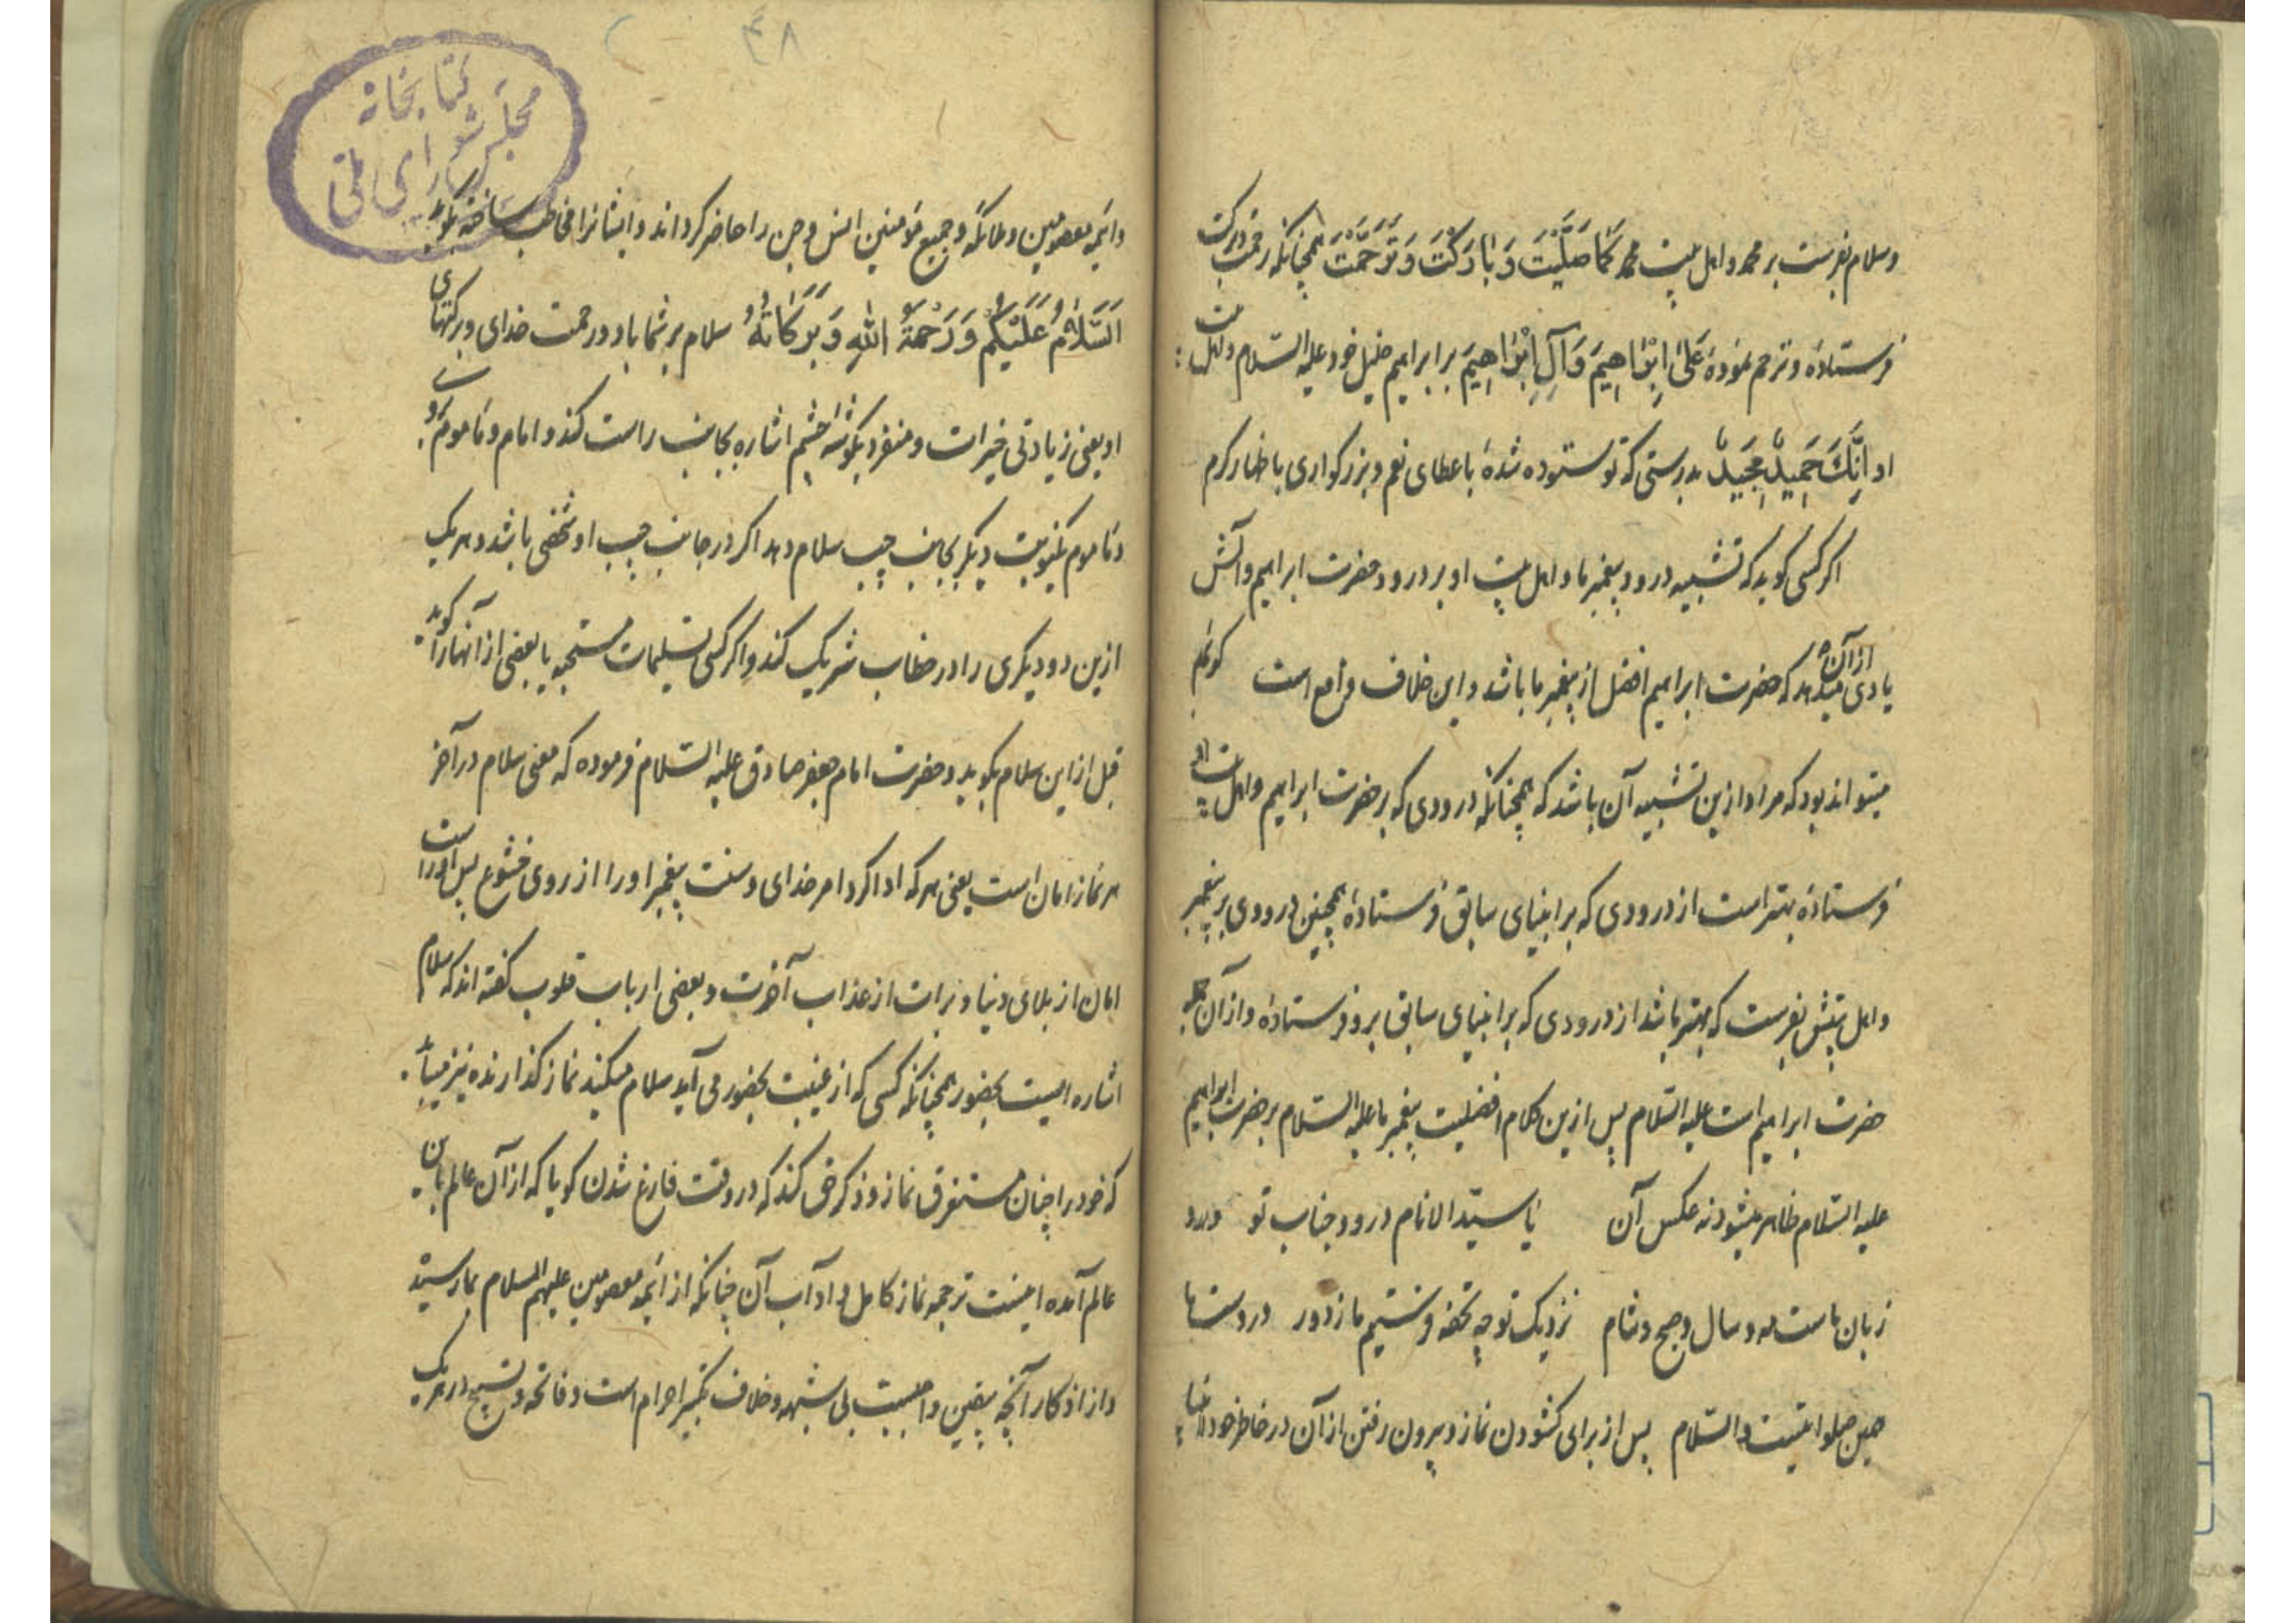 وسلام بفرست بر محمد واهل بیت محمد كَمٰا صَلَّيْتَ وَبٰارَكْتَ وَتَرَحَّمْتَ همچنانکه رحمت وبرکت
فرستادهٔ و ترحم نمودهٔ عَلىٰ اِبْرٰاهِيمَ وَآلِ اِبْرٰاهِيمَ بر ابراهیم خلیل خود علیه السّلام واهل بیت
او اِنَّكَ حَمِيدٌ مَجِيدٌ بدرستی که تو ستوده شدهٔ باعطای نعم وبزرکواری باظهار کرم
اکر کسی کوید که تشبیه درود پیغمبر ما و اهل بیت او بر درود حضرت ابراهیم وآلش
یادی میدهد از آن که حضرت ابراهیم افضل از پیغمبر ما باشد و این خلاف واقع است کوئیم
میتواند بود که مراد ازین تشبیه آن باشد که همچنانکه درودی که بر حضرت ابراهیم واهل بیت او
فرستادهٔ بهتر است از درودی که بر انبیای سابق فرستادهٔ همچنین درودی بر پیغمبر
واهل بیتش بفرست که بهتر باشد از درودی که بر انبیای سابق برو فرستادهٔ واز آن جمله
حضرت ابراهیم است علیه السّلام پس ازین کلام افضلیت پیغمبر ما علیه السّلام بر حضرت ابراهیم
علیه السّلام ظاهر میشود نه عکس آن یا سیّد الانام درود جناب تو ورد
زبان ماست مه و سال و صبح و شام نزدیک تو چه تحفه فرستیم ما ز دور در دست ما
همین صلواتیست والسّلام پس از برای کشودن نماز و بیرون رفتن از آن در خاطر خود انبیا
۴۸
کتابخانه
مجلس شورای ملّی
وائمه معصومین وملائکه وجمیع مؤمنین انس وجن را حاضر کرداند وایشانرا مخاطب ساخته بکوید
اَلسَّلٰامُ عَلَيْكُمْ وَرَحْمَةُ اللهِ وَبَرَكٰاتُهُ سلام بر شما باد ورحمت خدای وبرکتهای
او یعنی زیادتی خیرات ومنفرد بکوشه چشم اشاره بجانب راست کند و امام ومأموم بروی
ومأموم یکنوبت دیکر بجانب چپ سلام دهد اکر در جانب چپ او شخصی باشد وهر یک
ازین دو دیکری را در خطاب شریک کند واکر کسی تسلیمات مستحبه یا بعضی از آنها را کوید
قبل از این سلام بکوید وحضرت امام جعفر صادق علیه السّلام فرموده که معنی سلام در آخر
هر نماز امان است یعنی هر که ادا کرد امر خدای وسنت پیغمبر او را از روی خشوع پس اوراست
امان از بلای دنیا و برات از عذاب آخرت و بعضی ارباب قلوب کفته اند که سلام
اشاره ایست بحضور همچنانکه کسی که از غیبت بحضور می آید سلام میکند نماز کذارنده نیز میباید
که خود را چنان مستغرق نماز وذکر حق کند که در وقت فارغ شدن کویا که از آن عالم باین
عالم آمده اینست ترجمه نماز کامل و آداب آن چنانکه از ائمه معصومین علیهم السلام بما رسیده
واز اذکار آنچه بیقین واجبست بی شبهه وخلاف تکبیر احرام است وفاتحه وتسبیح در هر یک